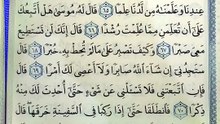 عِندِنَا وَعَلَّمْنَٰهُ مِن لَّدُنَّا عِلْمًا ٦٥ قَالَ لَهُۥ مُوسَىٰ هَلْ أَتَّبِعُكَ
عَلَىٰٓ أَن تُعَلِّمَنِ مِمَّا عُلِّمْتَ رُشْدًا ٦٦ قَالَ إِنَّكَ لَن تَسْتَطِيعَ
مَعِىَ صَبْرًا ٦٧ وَكَيْفَ تَصْبِرُ عَلَىٰ مَا لَمْ تُحِطْ بِهِۦ خُبْرًا ٦٨ قَالَ
سَتَجِدُنِىٓ إِن شَآءَ ٱللَّهُ صَابِرًا وَلَآ أَعْصِى لَكَ أَمْرًا ٦٩ قَالَ
فَإِنِ ٱتَّبَعْتَنِى فَلَا تَسْـَٔلْنِى عَن شَىْءٍ حَتَّىٰٓ أُحْدِثَ لَكَ مِنْهُ
ذِكْرًا ٧٠ فَٱنطَلَقَا حَتَّىٰٓ إِذَا رَكِبَا فِى ٱلسَّفِينَةِ خَرَقَهَا قَالَ